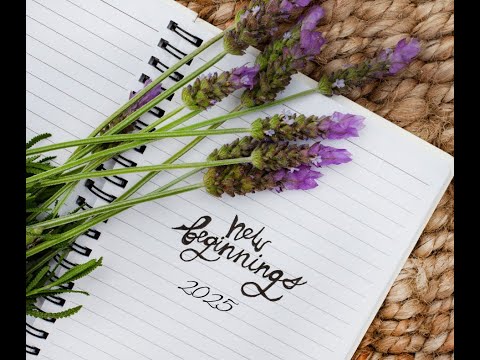 new
beginnings
2025